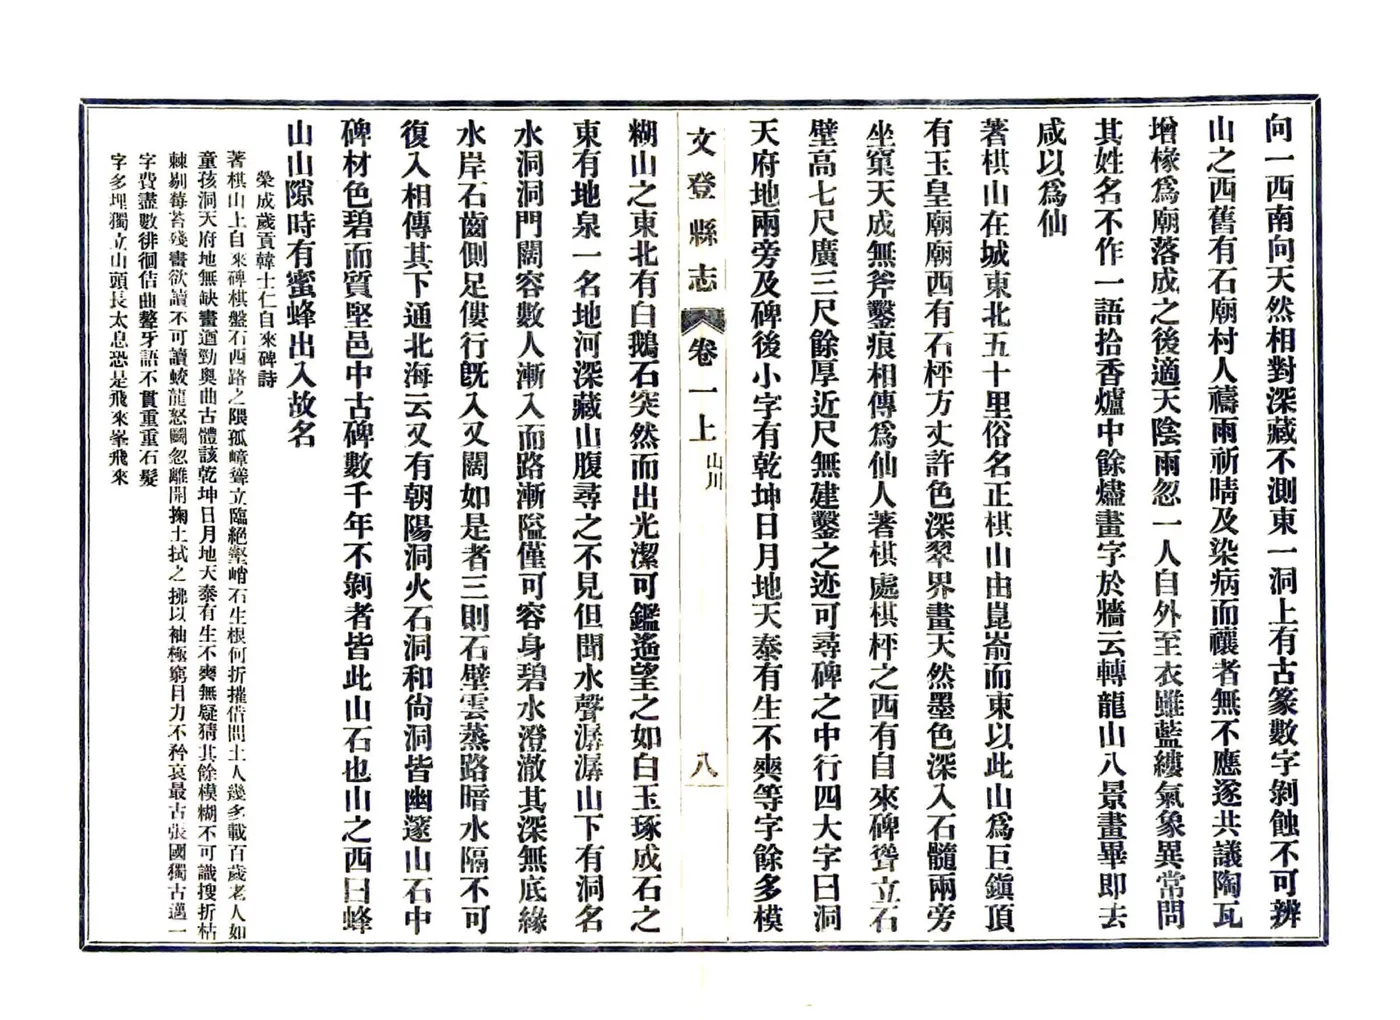 向一西南向天然相對深藏不測東一洞上有古篆數字剝蝕不可辨
山之西舊有石廟村人禱雨祈晴及染病而禳者無不應遂共議陶瓦
增椽爲廟落成之後適天陰雨忽一人自外至衣雖藍縷氣象異常問
其姓名不作一語拾香爐中餘燼畫字於牆云轉龍山八景畫畢即去
咸以爲仙
著棋山在城東北五十里俗名正棋山由崑崳而東以此山爲巨鎭頂
有玉皇廟廟西有石枰方丈許色深翠界畫天然墨色深入石髓兩旁
坐窠天成無斧鑿痕相傳爲仙人著棋處棋枰之西有自來碑聳立石
壁高七尺廣三尺餘厚近尺無建鑿之迹可尋碑之中行四大字曰洞
天府地兩旁及碑後小字有乾坤日月地天泰有生不爽等字餘多模
文登縣志 卷一上 山川 八
糊山之東北有白鵝石突然而出光潔可鑑遙望之如白玉琢成石之
東有地泉一名地河深藏山腹尋之不見但聞水聲潺潺山下有洞名
水洞洞門闊容數人漸入而路漸隘僅可容身碧水澄澈其深無底緣
水岸石齒側足僂行旣入又闊如是者三則石壁雲蒸路暗水隔不可
復入相傳其下通北海云又有朝陽洞火石洞和尙洞皆幽邃山石中
碑材色碧而質堅邑中古碑數千年不剝者皆此山石也山之西曰蜂
山山隙時有蜜蜂出入故名
榮成歲貢韓士仁自來碑詩
著棋山上自來碑棋盤石西路之隈孤嶂聳立臨絕壑峭石生根何折摧借問土人幾多載百歲老人如
童孩洞天府地無缺畫遒勁奥曲古體該乾坤日月地天泰有生不爽無疑猜其餘模糊不可識搜折枯
棘剔莓苔殘畫欲讀不可讀蛟龍怒鬭忽離開掬土拭之拂以袖極窮目力不矜哀最古張國獨古邁一
字費盡數徘徊佶曲聱牙語不貫重重石髮
字多埋獨立山頭長太息恐是飛來峯飛來